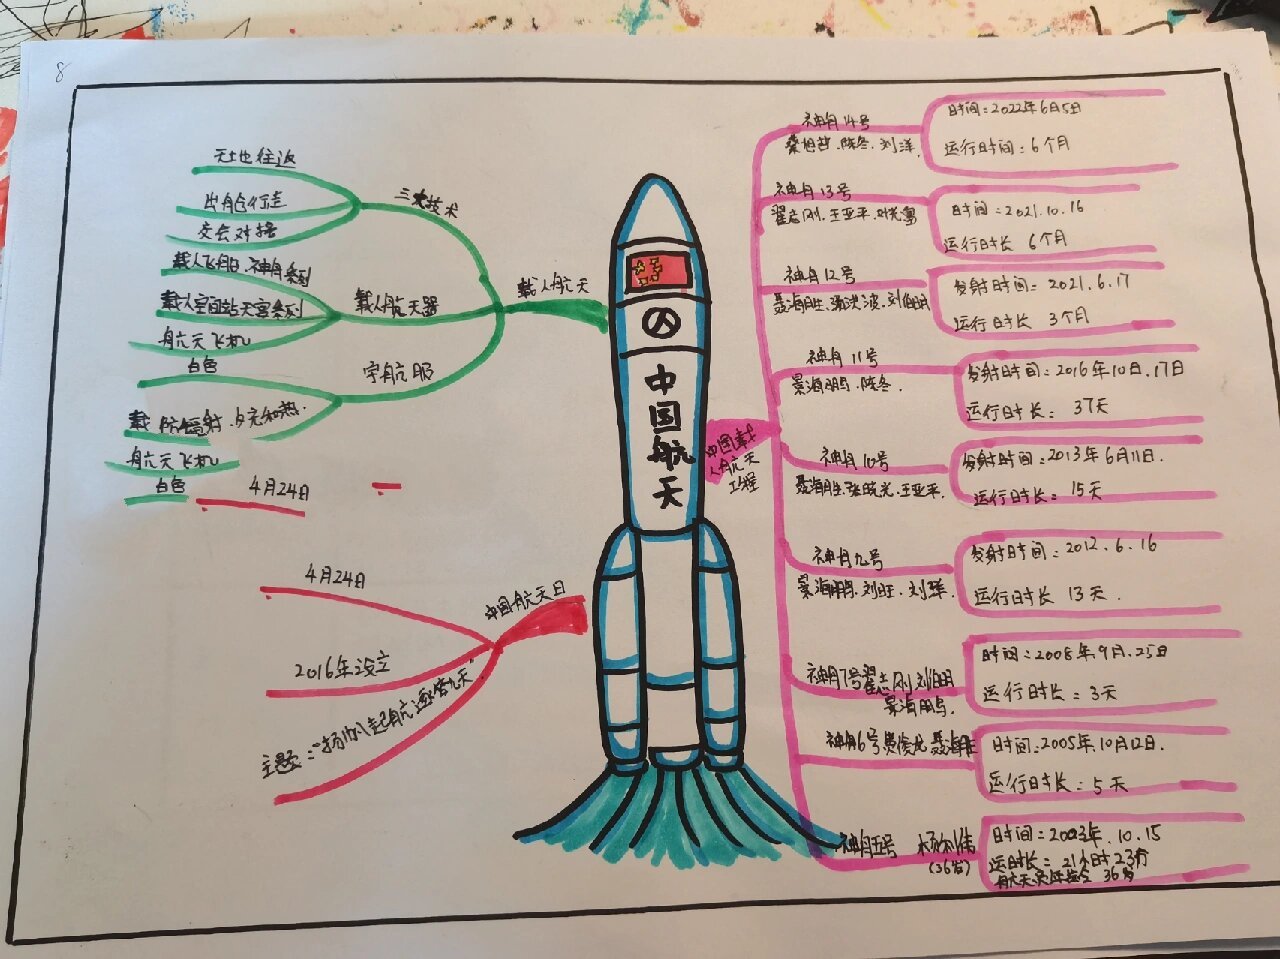 8
天地往返
出舱行走
交会对接
三大技术
载人飞船.神舟系列
载人空间站天宫系列
航天飞机
载人航天器
载人航天
白色
宇航服
载 防辐射.
航天飞机
白色
4月24日
4月24日
2016年设立
主题:"扬帆起航逐梦九天"
中国航天日
人
中国航天
中国载
人航天
工程
神舟14号
蔡旭哲.陈冬.刘洋.
时间:2022年6月5日
运行时间:6个月
神舟13号
翟志刚.王亚平.叶光富
时间:2021.10.16
运行时长 6个月
神舟12号
聂海胜.汤洪波.刘伯明
发射时间:2021.6.17
运行时长 3个月
神舟11号
景海鹏.陈冬.
发射时间:2016年10日.17日
运行时长: 37天
神舟10号
聂海胜.张晓光.王亚平.
发射时间:2013年6月11日.
运行时长: 15天
神舟九号
景海鹏.刘旺.刘洋.
发射时间:2012.6.16
运行时长 13天.
神舟7号翟志刚刘伯明
景海鹏.
时间:2008年9月.25日
运行时长:3天
神舟6号费俊龙聂海胜
时间:2005年10月12日.
运行时长:5天
神舟五号 杨利伟
(36岁)
时间:2003年.10.15
运时长:21小时23分
航天员年龄 36岁